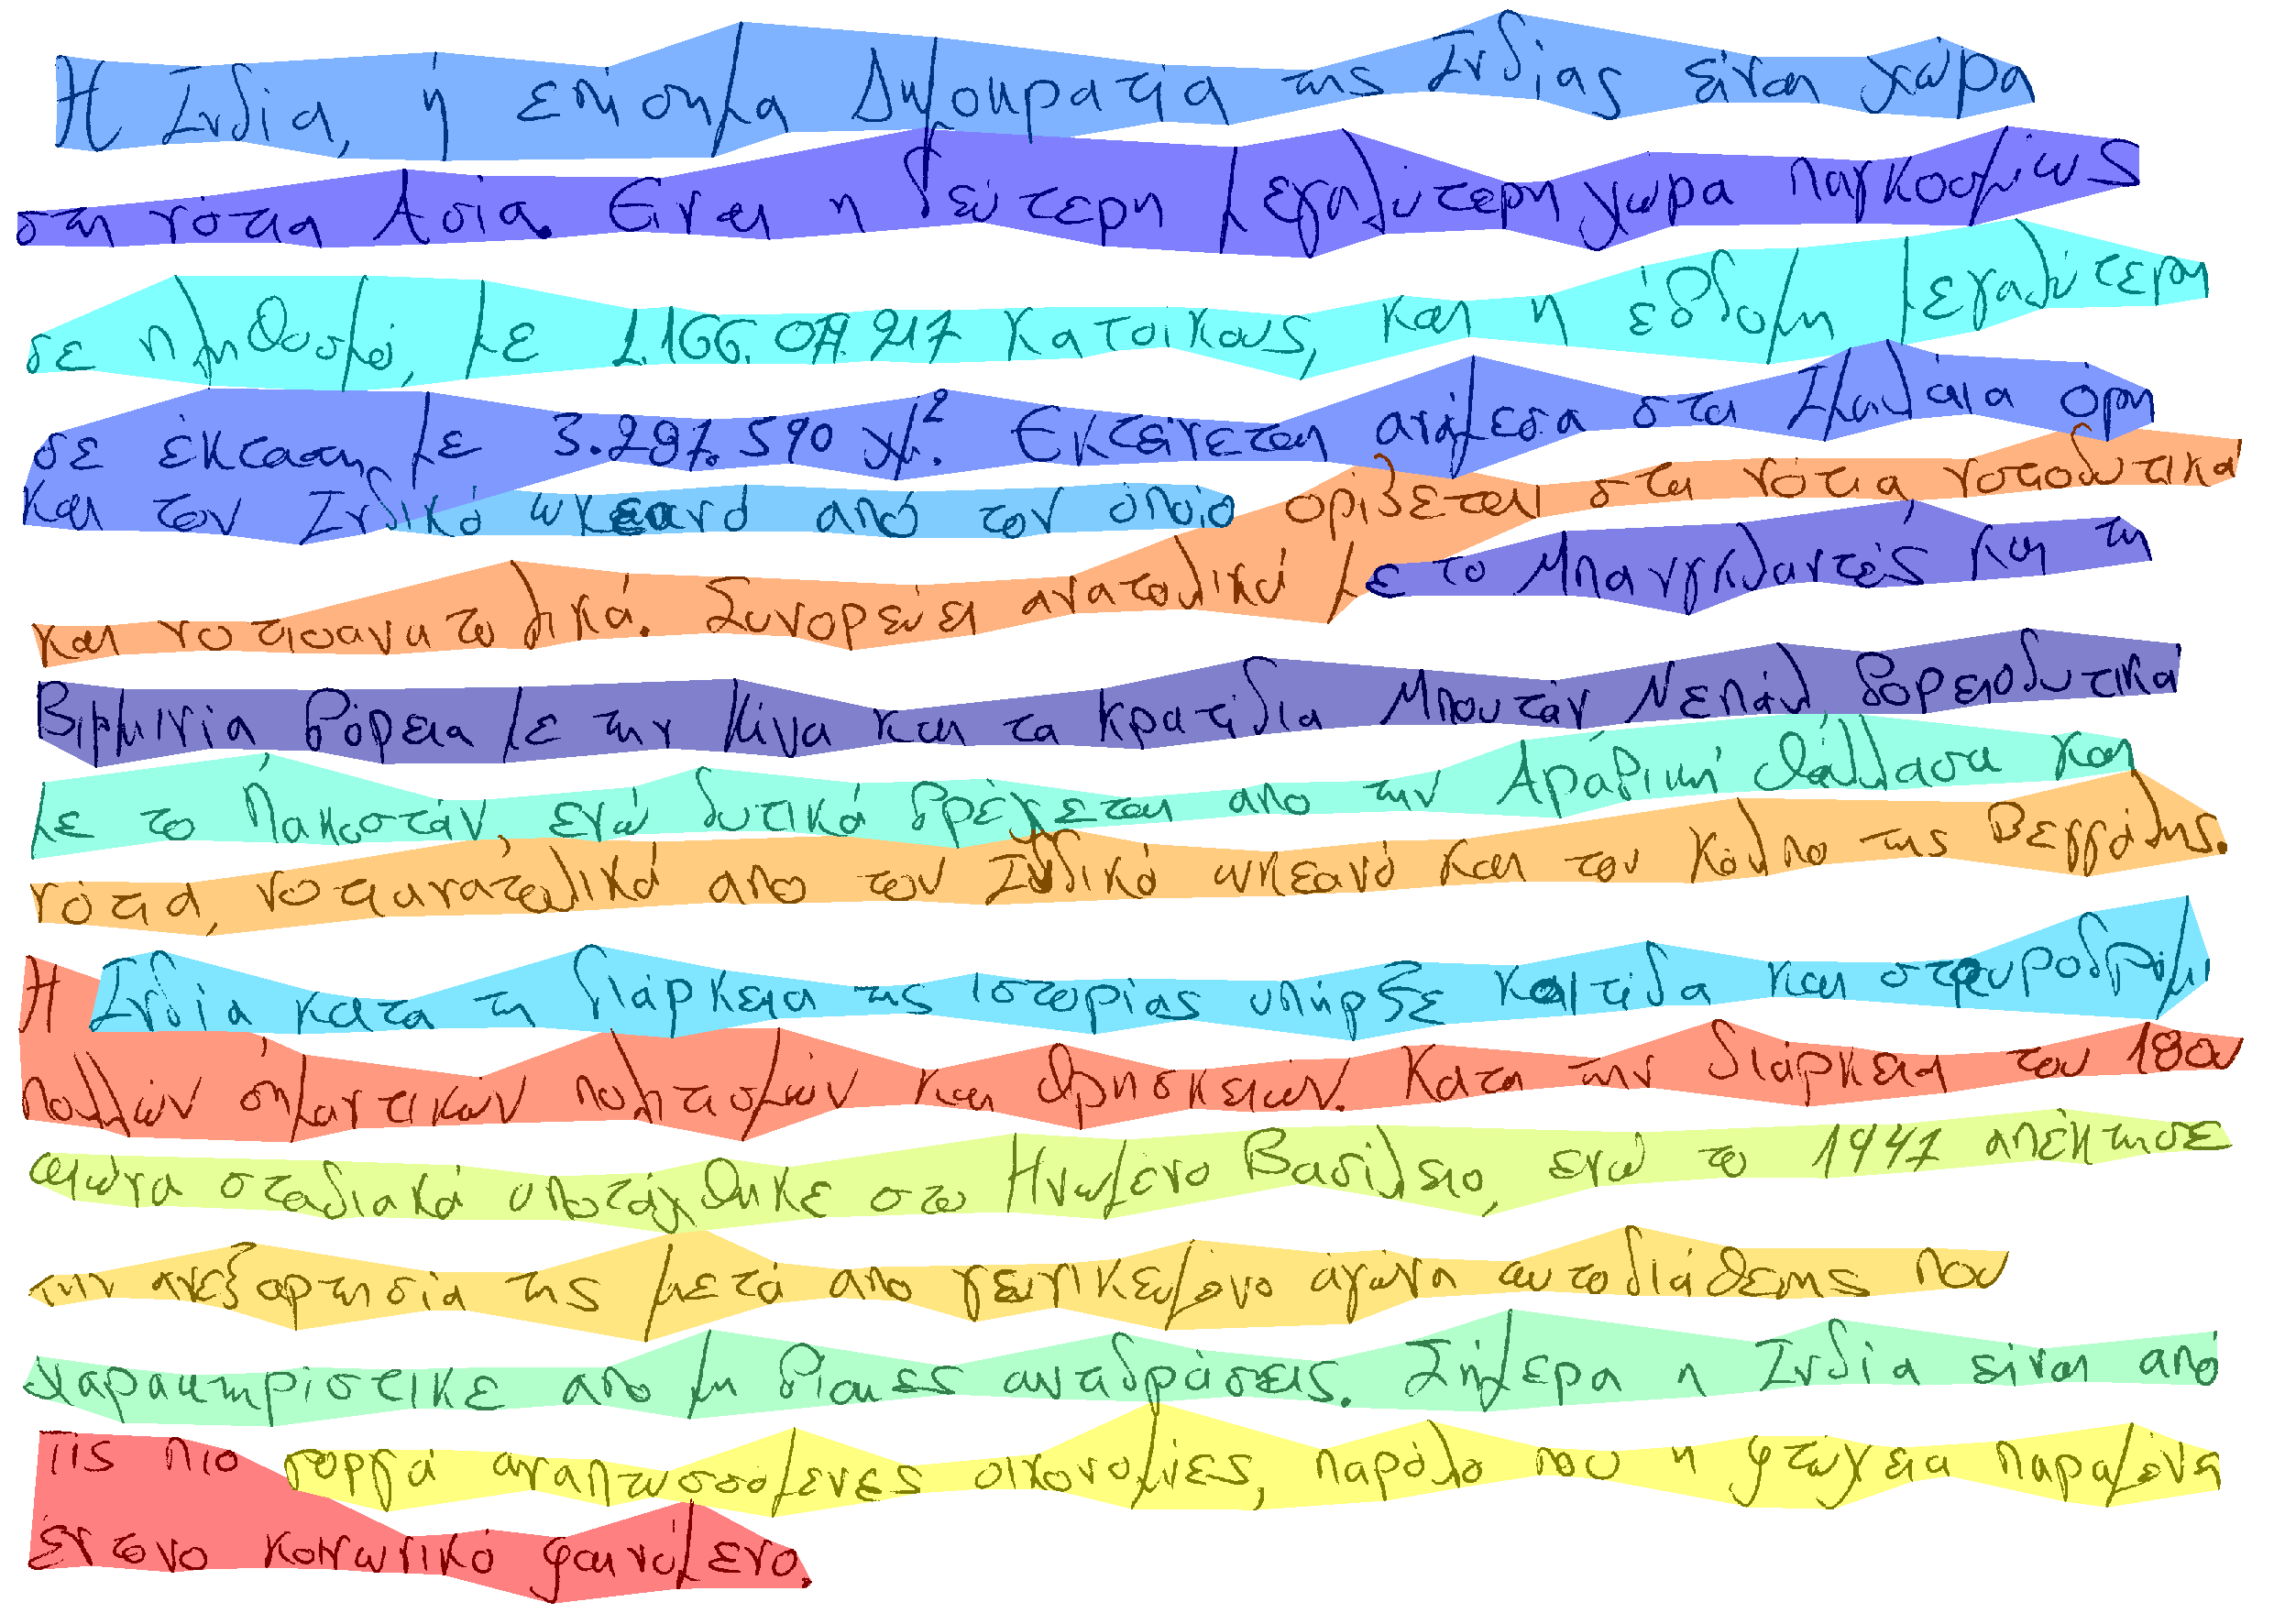 Η Ινδία, ή επίσημα Δημοκρατία της Ινδίας είναι χώρα
στη νότια Ασία. Είναι η δεύτερη μεγαλύτερη χώρα παγκοσμίως
σε πληθυσμό, με 1.166.079.217 κατοίκους, και η έβδομη μεγαλύτερη
σε έκταση με 3.287.590 χμ². Εκτείνεται ανάμεσα στα Ιμαλάια όρη
και τον Ινδικό ωκεανό από τον όποίο ορίζεται στα νότια, νοτιοδυτικά
και νοτιοανατολικά. Συνορεύει ανατολικά με το Μπανγκλαντές, και τη
Βιρμινία, βόρεια με την Κίνα και τα κρατίδια Μπουτάν Νεπάλ, βορειοδυτικά
με το Πακιστάν, ενώ δυτικά βρέχεται απο την Αραβική θάλλασα και
νότια, νοτιανατολικά απο τον Ινδικό ωκεανό και τον κόλπο της Βεγγάλης.
Η Ινδία κατα τη διάρκεια της ιστορίας υπήρξε κοιτίδα και σταυροδρόμι
πολλών σημαντικών πολιτισμών και θρησκειών. Κατα την διάρκεια του 19ου
αιώνα σταδιακά υποτάχθηκε στο Ηνωμένο Βασίλειο, ενώ το 1947 απέκτησε
την ανεξαρτησία της μετά απο γενικευμένο αγώνα αυτοδιάθεσης που
χαρακτηρίστικε απο μη βίαιες αντιδράσεις. Σήμερα η Ινδία είναι από
τις πιο γοργά αναπτυσσόμενες οικονομίες, παρόλο που η φτώχεια παραμένει
έντονο κοινωνικό φαινόμενο.